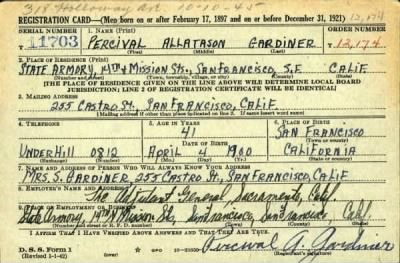 318 Holloway Av. 10-10-45
REGISTRATION CARD—(Men born on or after February 17, 1897 and on or before December 31, 1921)
12,174
SERIAL NUMBER
1. NAME (Print)
ORDER NUMBER
11703
PERCIVAL ALLATASON GARDINER
12,174
(First) (Middle) (Last)
2. PLACE OF RESIDENCE (Print)
STATE ARMORY, 14TH & MISSION STS., SAN FRANCISCO, S.F. CALIF.
(Number and street) (Town, township, village, or city) (County) (State)
[THE PLACE OF RESIDENCE GIVEN ON THE LINE ABOVE WILL DETERMINE LOCAL BOARD
JURISDICTION; LINE 2 OF REGISTRATION CERTIFICATE WILL BE IDENTICAL]
3. MAILING ADDRESS
255 CASTRO ST., SAN FRANCISCO, CALIF.
[Mailing address if other than place indicated on line 2. If same insert word same]
4. TELEPHONE
5. AGE IN YEARS
6. PLACE OF BIRTH
41
SAN FRANCISCO
DATE OF BIRTH
(Town or county)
UNDERHILL 0812
APRIL 4 1900
CALIFORNIA
(Exchange) (Number)
(Mo.) (Day) (Yr.)
(State or country)
7. NAME AND ADDRESS OF PERSON WHO WILL ALWAYS KNOW YOUR ADDRESS
MRS. S. GARDINER, 255 CASTRO ST., SAN FRANCISCO, CALIF.
8. EMPLOYER'S NAME AND ADDRESS
The Adjutant General, Sacramento, Calif.
9. PLACE OF EMPLOYMENT OR BUSINESS
State Armory, 14th & Mission Sts., San Francisco, San Francisco, Calif.
(Number and street or R. F. D. number) (Town) (County) (State)
I AFFIRM THAT I HAVE VERIFIED ABOVE ANSWERS AND THAT THEY ARE TRUE.
D. S. S. Form 1
(Revised 1-1-42)
GPO
Percival A. Gardiner
(Registrant's signature)